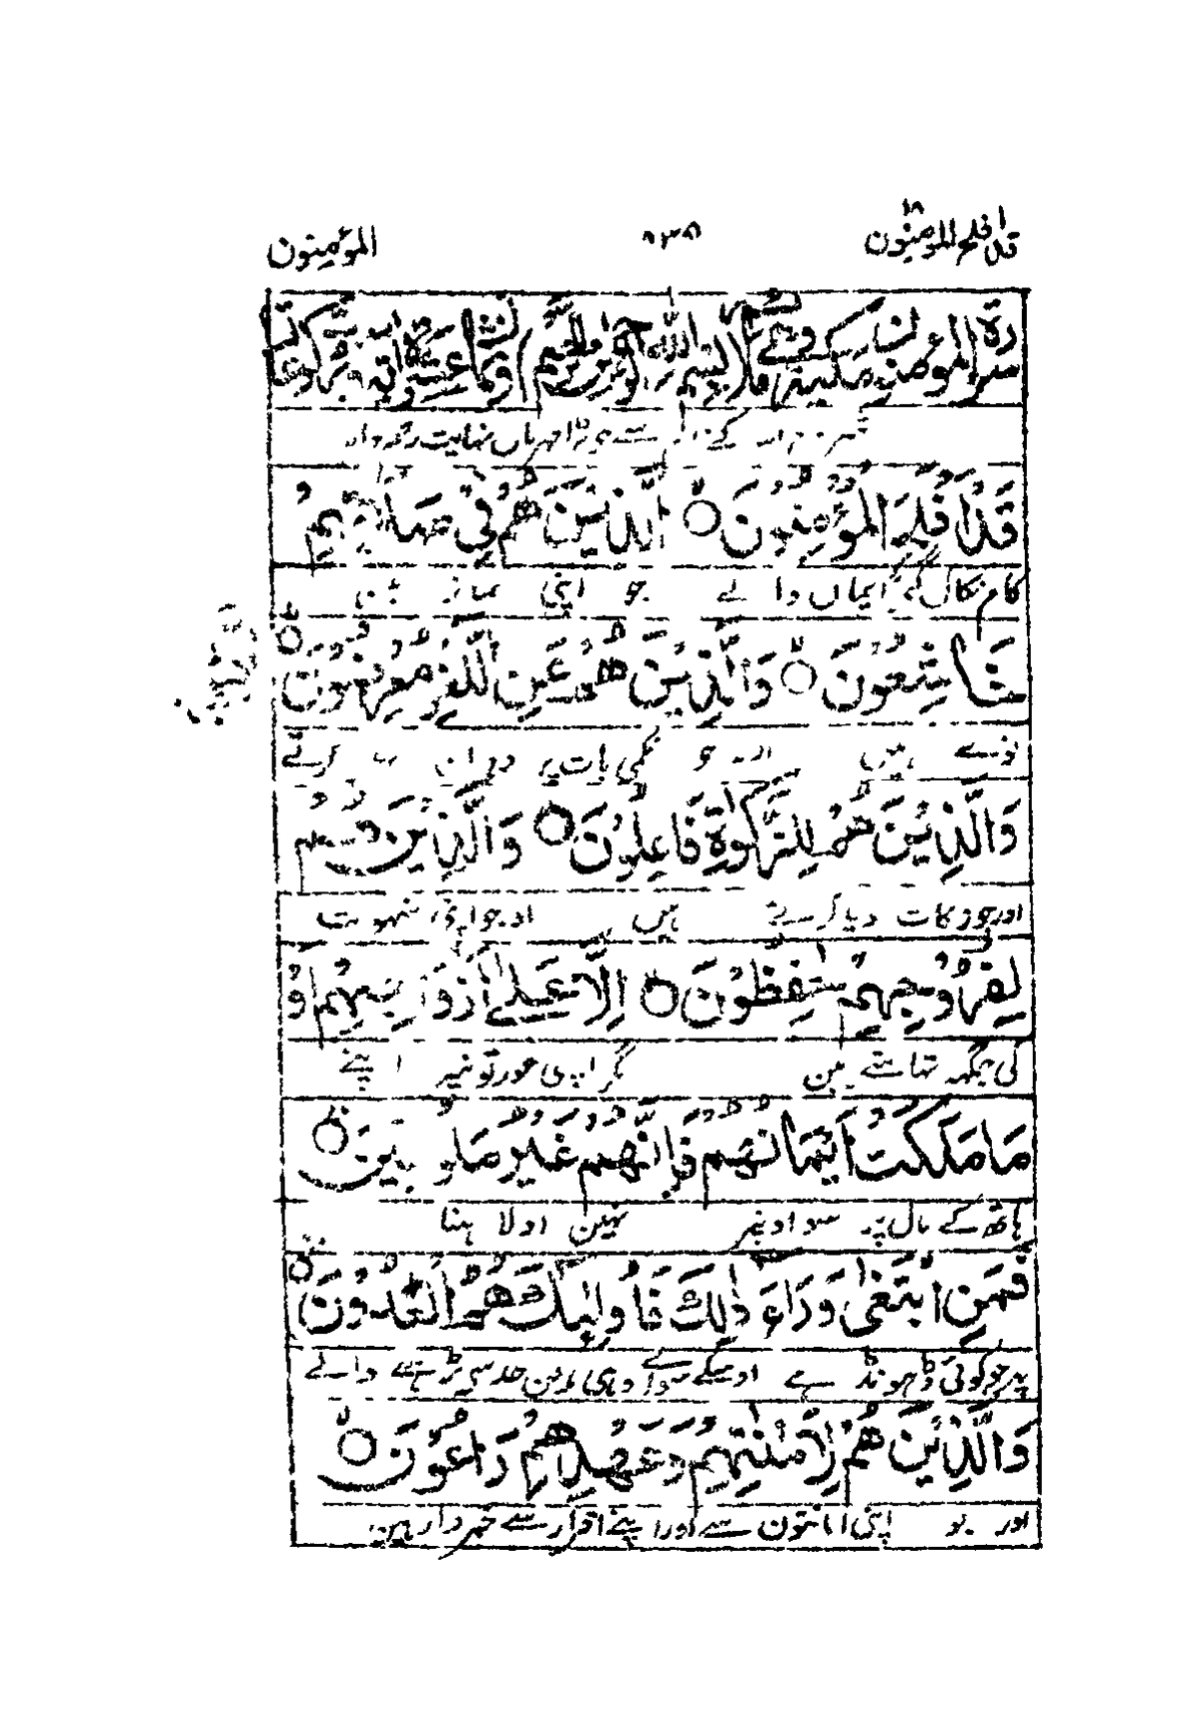 قد افلح المؤمنون ١٨ ٥٣٨ المؤمنون
سورة المؤمنون مكية بسم الله الرحمن الرحيم
سے جو بڑا مہربان نہایت رحم والا
قَدْ اَفْلَحَ الْمُؤْمِنُوْنَ ۝ الَّذِيْنَ هُمْ فِيْ صَلَاتِهِمْ
کام نکال گئے ایمان والے جو اپنی نماز میں
خَاشِعُوْنَ ۝ وَالَّذِيْنَ هُمْ عَنِ اللَّغْوِ مُعْرِضُوْنَ ۝
نوے ہیں اور جو نکمی بات پر دہیان نہ کرتے
وَالَّذِيْنَ هُمْ لِلزَّكٰوةِ فَاعِلُوْنَ ۝ وَالَّذِيْنَ هُمْ
اور جو زکات دیا کرتے ہیں اور جو اپنی شہوت
لِفُرُوْجِهِمْ حٰفِظُوْنَ ۝ اِلَّا عَلٰٓى اَزْوَاجِهِمْ اَوْ
کی جگہہ تہامتے ہین مگر اپنی عورتونپر اپنے
مَا مَلَكَتْ اَيْمَانُهُمْ فَاِنَّهُمْ غَيْرُ مَلُوْمِيْنَ ۝
ہاتھ کے مال پر سو اونپر نہین اولاہنا
فَمَنِ ابْتَغٰى وَرَآءَ ذٰلِكَ فَاُولٰٓئِكَ هُمُ الْعٰدُوْنَ ۝
پہر جو کوئی ڈہونڈے اوسکے سوائے وہی ہین حد سے بڑہنے والے
وَالَّذِيْنَ هُمْ لِاَمٰنٰتِهِمْ وَعَهْدِهِمْ رَاعُوْنَ ۝
اور جو اپنی امانتون سے اور اپنے اقرار سے خبردار ہین